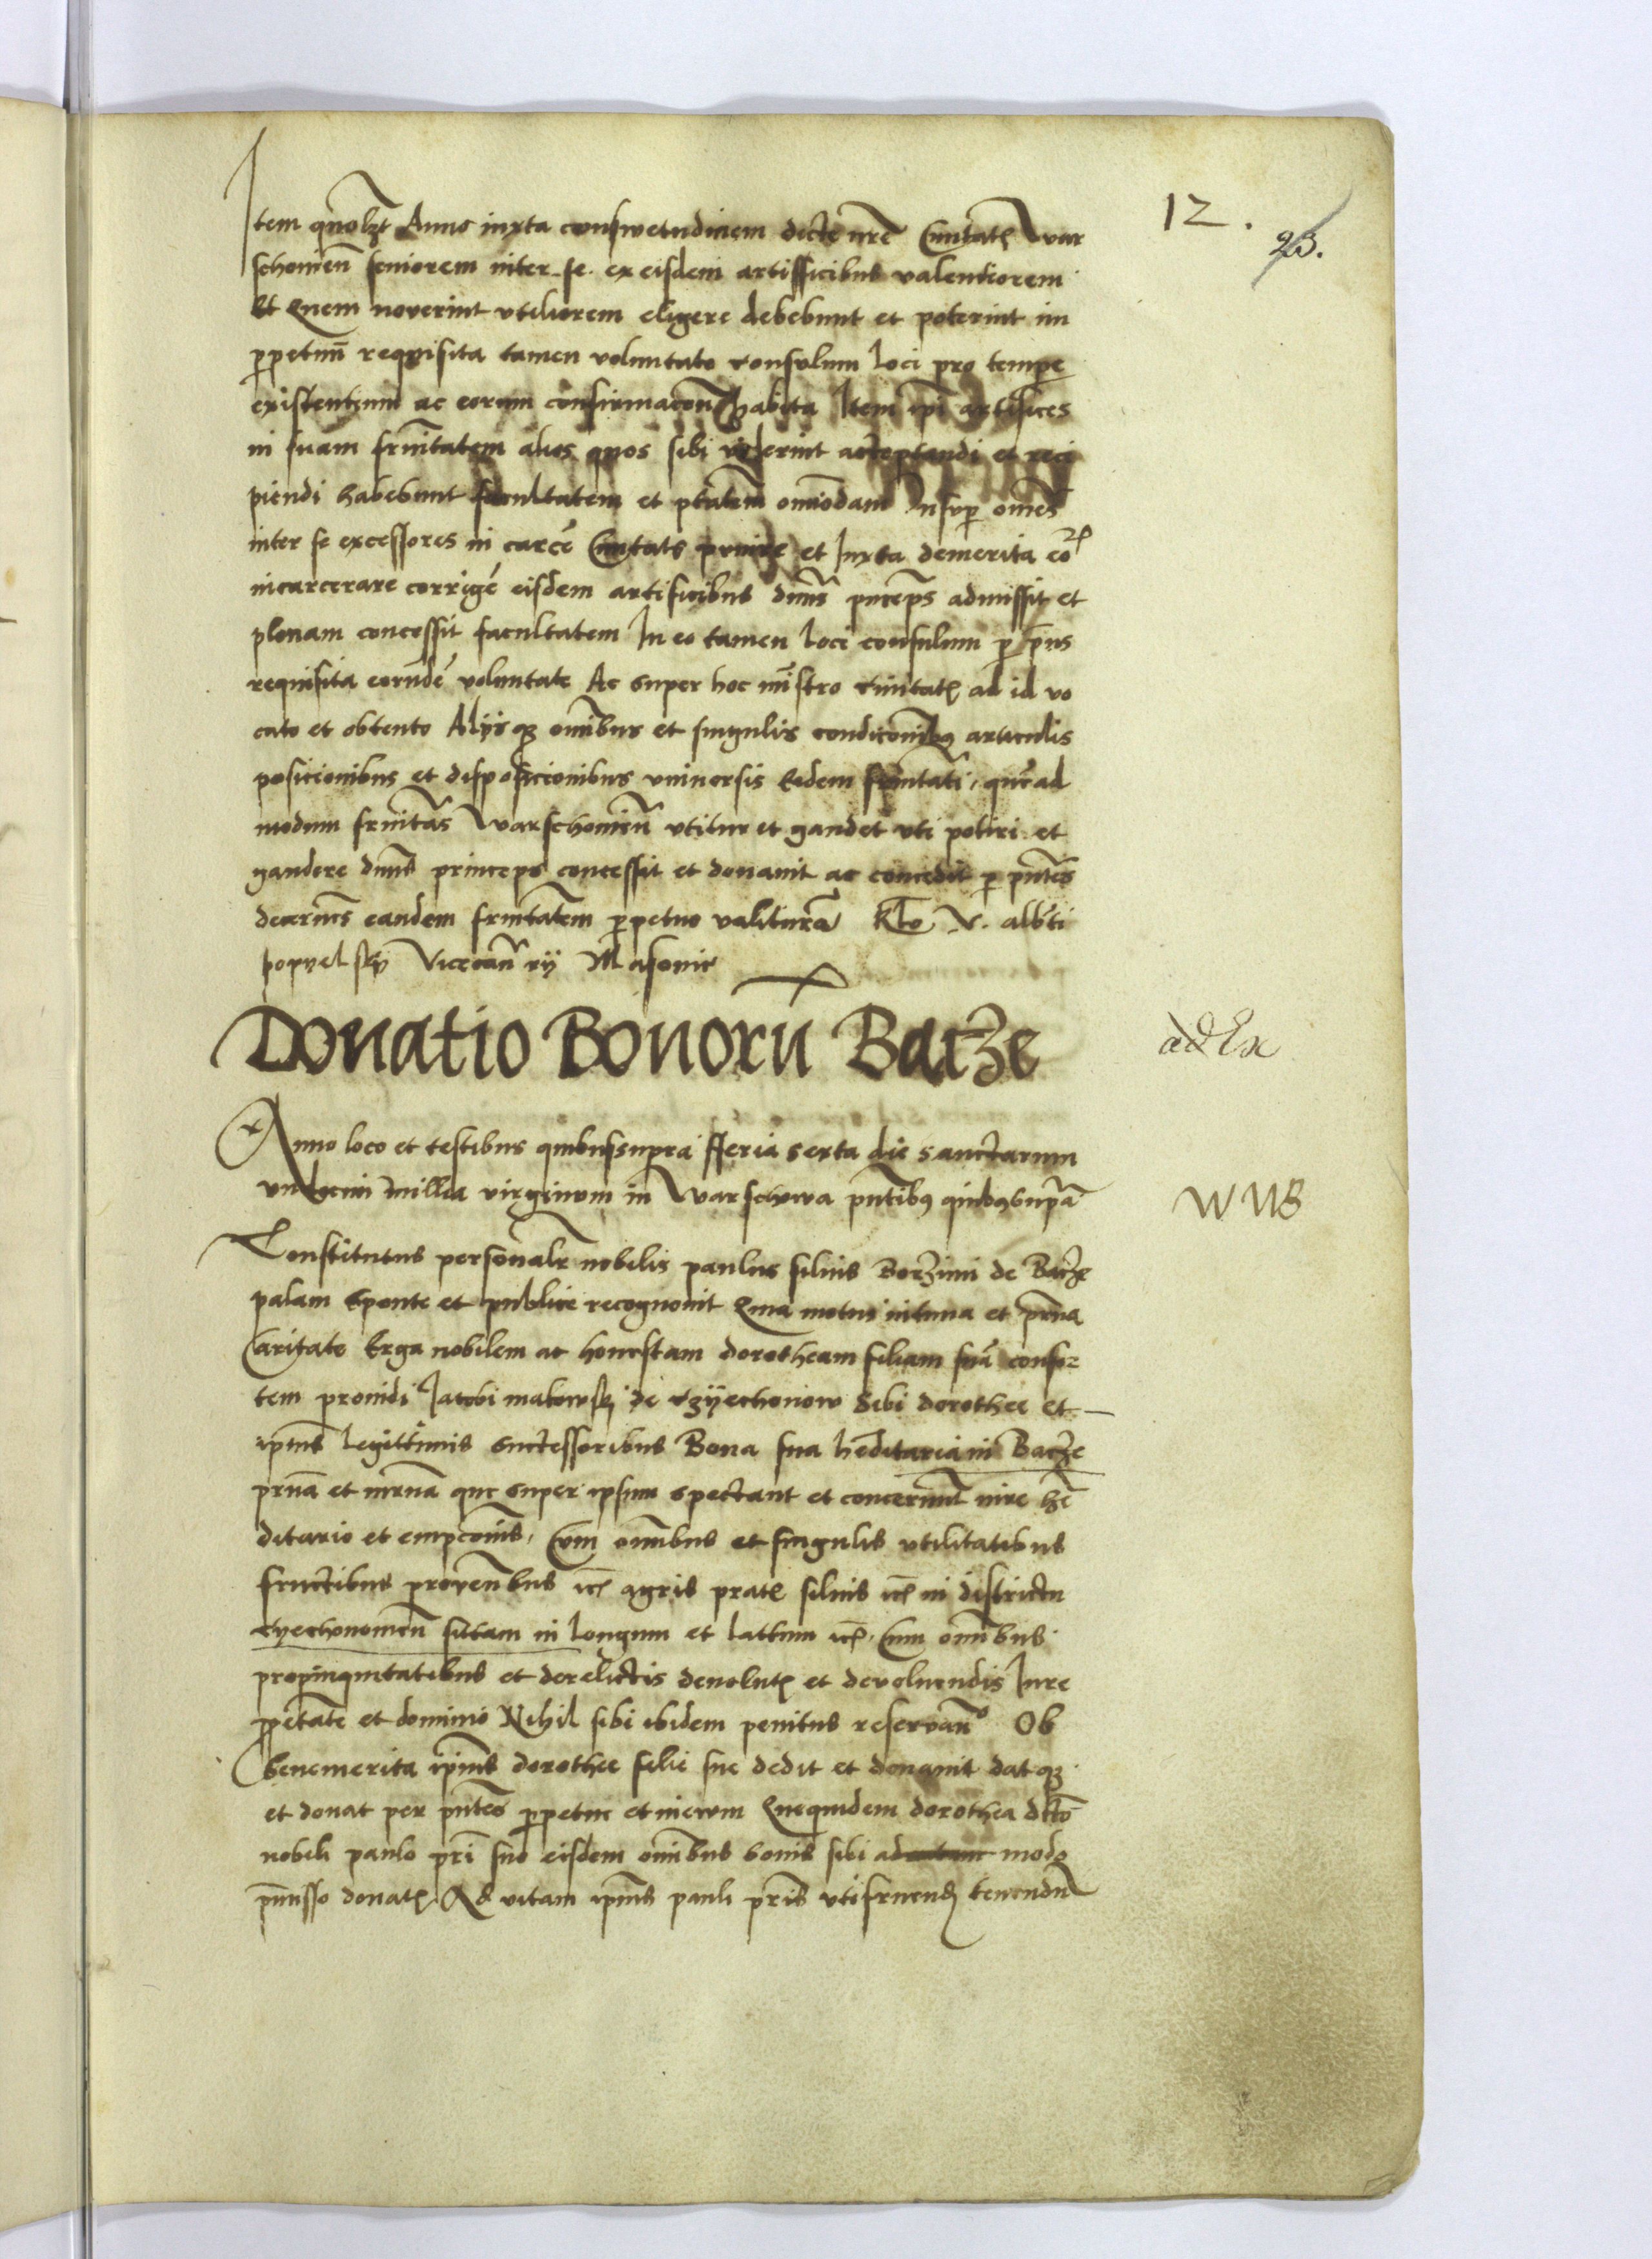 12.
23.
Item quolꝫt Anno iuxta conswetudinem dicte nr̄e Ciuitatꝭ War
schouien̄ seniorem inter se ex eisdem artifficibus valentiorem
Et Quem noverint vtiliorem eligere debebunt et poterint im
ꝑpetuū requisita tamen voluntate consulum loci pro tempe
existentium ac eorum confirmacōn habita Item ip̄i artifices
in suam frn̄itatem alios quos sibi viderint acceptandi et reci
piendi habebunt facultatem et ptātem om̄iodam Insuꝑ om̄es
inter se excessores in carcē Ciuitatis punire et Iuxta demerita eoꝝ
incarcerare corrigē eisdem artificibus dn̄us pnceps admissit et
plenam concessit facultatem In eo tamen loci consulum ꝑ p̄us
requisita eorundē voluntate Ac super hoc mīstro ciuitatꝭ ad id vo
cato et obtento Alijsqꝫ om̄ibus et singulis condicōnibꝫ articulis
posicionibus et disposicionibus vniuersis Eidem frn̄itati quēad
modum frn̄itas Warschouien̄ vtitur et gaudet vti potiri et
gaudere dn̄us princeps concessit et donauit ac concedit ꝑ pn̄tes
decernēs eandem frn̄itatem ꝑpetuo valiturā Rło V. alb̄ti
popyelsky Vicecan̄rij Masouie
Donatio Bonorū Barze
Anno loco et testibus quibus supra fferia sexta die sanctarum
vndecim millia virginum in Warschowa pn̄tibꝫ quibꝫ supra
ad Ex
WNB
Constitutus personalr̄ nobilis paulus filius Borzimi de Barze
palam sponte et publice recognouit Quia motus intima et pr̄na
Caritate Erga nobilem ac honestam dorotheam filiam suā consor
tem prouidi Jacobi makowsky de Czyechonow Sibi dorothee et
ip̄ius legittimis successoribus Bona sua hēditaria in Barze
pr̄na et mr̄na que super ipsum spectant et concernunt iure hē
ditario et empcōnis, Cum om̄ibus et singulis vtilitatibus
fructibus prouen̄bus itꝭ agris pratꝭ siluis itꝭ in districtu
Cyechonowien̄ sitam in longum et lattum itꝭ, Cum om̄ibus
propinquitatibus et derelictis deuolutꝭ et devoluendis Iure
ꝓpetate et dominio Nihil sibi ibidem penitus reservan̄ᵒ Ob
benemerita ip̄ius dorothee filie sue dedit et donauit datqꝫ
et donat per pn̄tes ꝑpetue et in ewm Quequidem dorothea dc̄to
nobili paulo pr̄i suo eisdem om̄ibus bonis sibi modo
p̄misso donatꝭ Ad vitam ip̄ius pauli pr̄is vtifruendꝭ tenendū